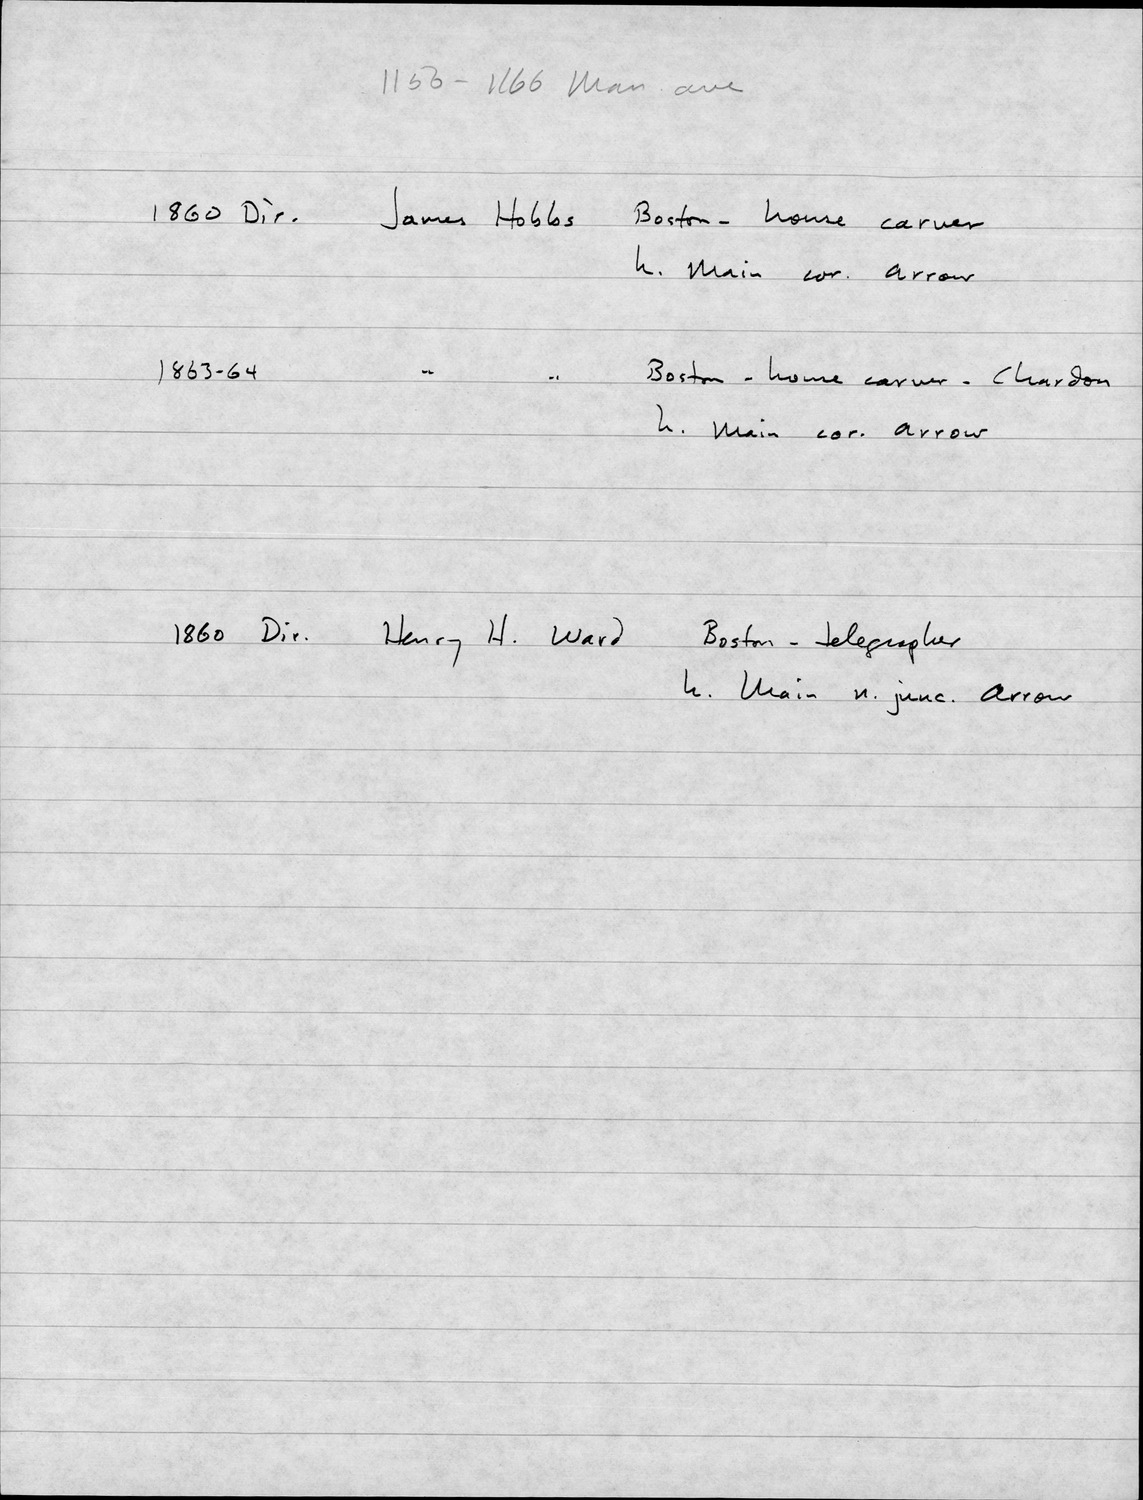 1156-1166 Mass. ave
1860 Dir. James Hobbs Boston - house carver
h. Main cor. Arrow
1863-64 " " Boston - house carver - Chardon
h. Main cor. Arrow
1860 Dir. Henry H. Ward Boston - telegrapher
h. Main n. junc. Arrow